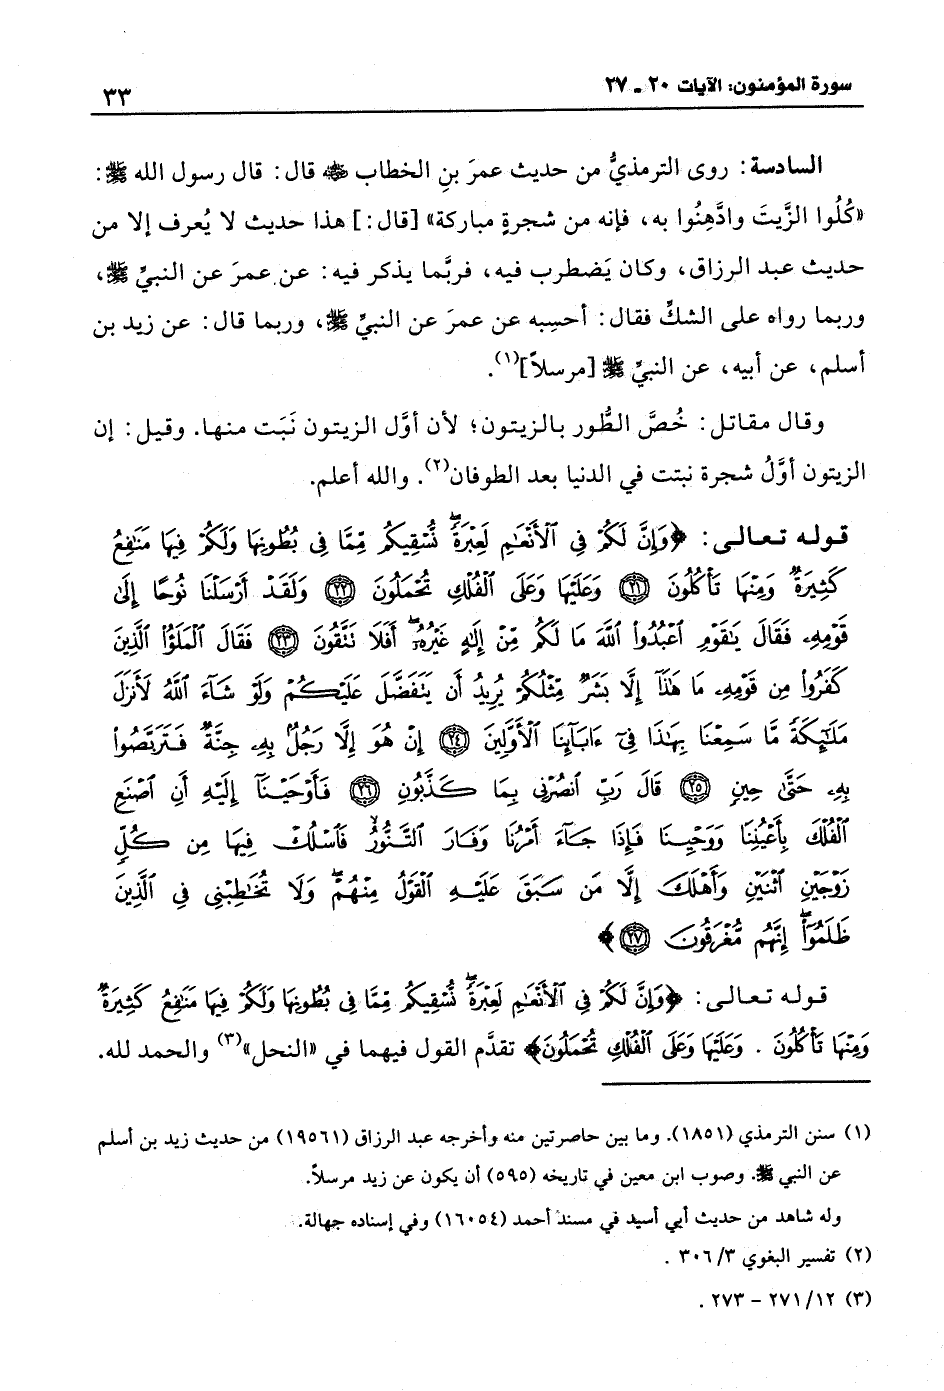 سورة المؤمنون: الآيات ٢٠ - ٢٧
٣٣
السادسة: روى الترمذيُّ من حديث عمرَ بنِ الخطاب ﷺ قال: قال رسول الله ﷺ:
«كُلُوا الزَّيتَ وادَّهِنُوا به، فإنه من شجرةٍ مباركة» [قال:] هذا حديث لا يُعرف إلا من
حديث عبد الرزاق، وكان يَضطرب فيه، فربَّما يذكر فيه: عن عمرَ عن النبيِّ ﷺ،
وربما رواه على الشكِّ فقال: أحسِبه عن عمرَ عن النبيِّ ﷺ، وربما قال: عن زيد بن
أسلم، عن أبيه، عن النبيِّ ﷺ [مرسلاً](١).
وقال مقاتل: خُصَّ الطُّور بالزيتون؛ لأن أوَّل الزيتون نَبَت منها. وقيل: إن
الزيتون أوَّلُ شجرة نبتت في الدنيا بعد الطوفان(٢). والله أعلم.
قوله تعالى: ﴿وَإِنَّ لَكُمْ فِي ٱلْأَنْعَٰمِ لَعِبْرَةً ۖ نُّسْقِيكُم مِّمَّا فِي بُطُونِهَا وَلَكُمْ فِيهَا مَنَٰفِعُ
كَثِيرَةٌ وَمِنْهَا تَأْكُلُونَ ﴿٢١﴾ وَعَلَيْهَا وَعَلَى ٱلْفُلْكِ تُحْمَلُونَ ﴿٢٢﴾ وَلَقَدْ أَرْسَلْنَا نُوحًا إِلَىٰ
قَوْمِهِۦ فَقَالَ يَٰقَوْمِ ٱعْبُدُوا۟ ٱللَّهَ مَا لَكُم مِّنْ إِلَٰهٍ غَيْرُهُۥٓ ۖ أَفَلَا تَتَّقُونَ ﴿٢٣﴾ فَقَالَ ٱلْمَلَؤُا۟ ٱلَّذِينَ
كَفَرُوا۟ مِن قَوْمِهِۦ مَا هَٰذَآ إِلَّا بَشَرٌ مِّثْلُكُمْ يُرِيدُ أَن يَتَفَضَّلَ عَلَيْكُمْ وَلَوْ شَآءَ ٱللَّهُ لَأَنزَلَ
مَلَٰٓئِكَةً مَّا سَمِعْنَا بِهَٰذَا فِىٓ ءَابَآئِنَا ٱلْأَوَّلِينَ ﴿٢٤﴾ إِنْ هُوَ إِلَّا رَجُلٌۢ بِهِۦ جِنَّةٌ فَتَرَبَّصُوا۟
بِهِۦ حَتَّىٰ حِينٍ ﴿٢٥﴾ قَالَ رَبِّ ٱنصُرْنِى بِمَا كَذَّبُونِ ﴿٢٦﴾ فَأَوْحَيْنَآ إِلَيْهِ أَنِ ٱصْنَعِ
ٱلْفُلْكَ بِأَعْيُنِنَا وَوَحْيِنَا فَإِذَا جَآءَ أَمْرُنَا وَفَارَ ٱلتَّنُّورُ ۙ فَٱسْلُكْ فِيهَا مِن كُلٍّ
زَوْجَيْنِ ٱثْنَيْنِ وَأَهْلَكَ إِلَّا مَن سَبَقَ عَلَيْهِ ٱلْقَوْلُ مِنْهُمْ ۖ وَلَا تُخَٰطِبْنِى فِى ٱلَّذِينَ
ظَلَمُوٓا۟ ۖ إِنَّهُم مُّغْرَقُونَ ﴿٢٧﴾﴾
قوله تعالى: ﴿وَإِنَّ لَكُمْ فِي ٱلْأَنْعَٰمِ لَعِبْرَةً ۖ نُّسْقِيكُم مِّمَّا فِي بُطُونِهَا وَلَكُمْ فِيهَا مَنَٰفِعُ كَثِيرَةٌ
وَمِنْهَا تَأْكُلُونَ . وَعَلَيْهَا وَعَلَى ٱلْفُلْكِ تُحْمَلُونَ﴾ تقدَّم القول فيهما في «النحل»(٣) والحمد لله.
(١) سنن الترمذي (١٨٥١). وما بين حاصرتين منه وأخرجه عبد الرزاق (١٩٥٦١) من حديث زيد بن أسلم
عن النبي ﷺ. وصوب ابن معين في تاريخه (٥٩٥) أن يكون عن زيد مرسلاً.
وله شاهد من حديث أبي أسيد في مسند أحمد (١٦٠٥٤) وفي إسناده جهالة.
(٢) تفسير البغوي ٣/ ٣٠٦ .
(٣) ١٢/ ٢٧١ - ٢٧٣ .